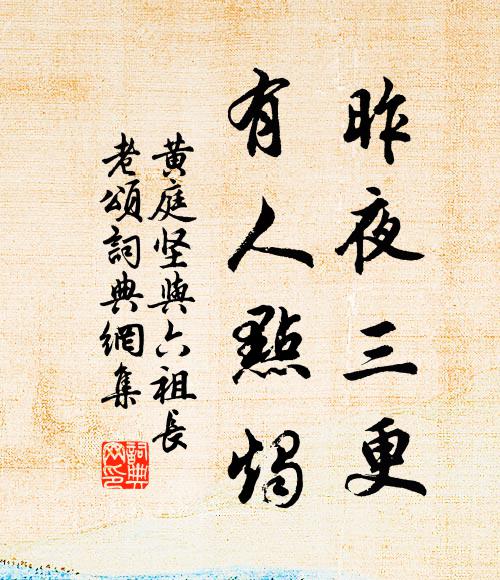 昨夜三更
有人點燭
黄庭坚與六祖長
老頌詞典網集
詞典
网印